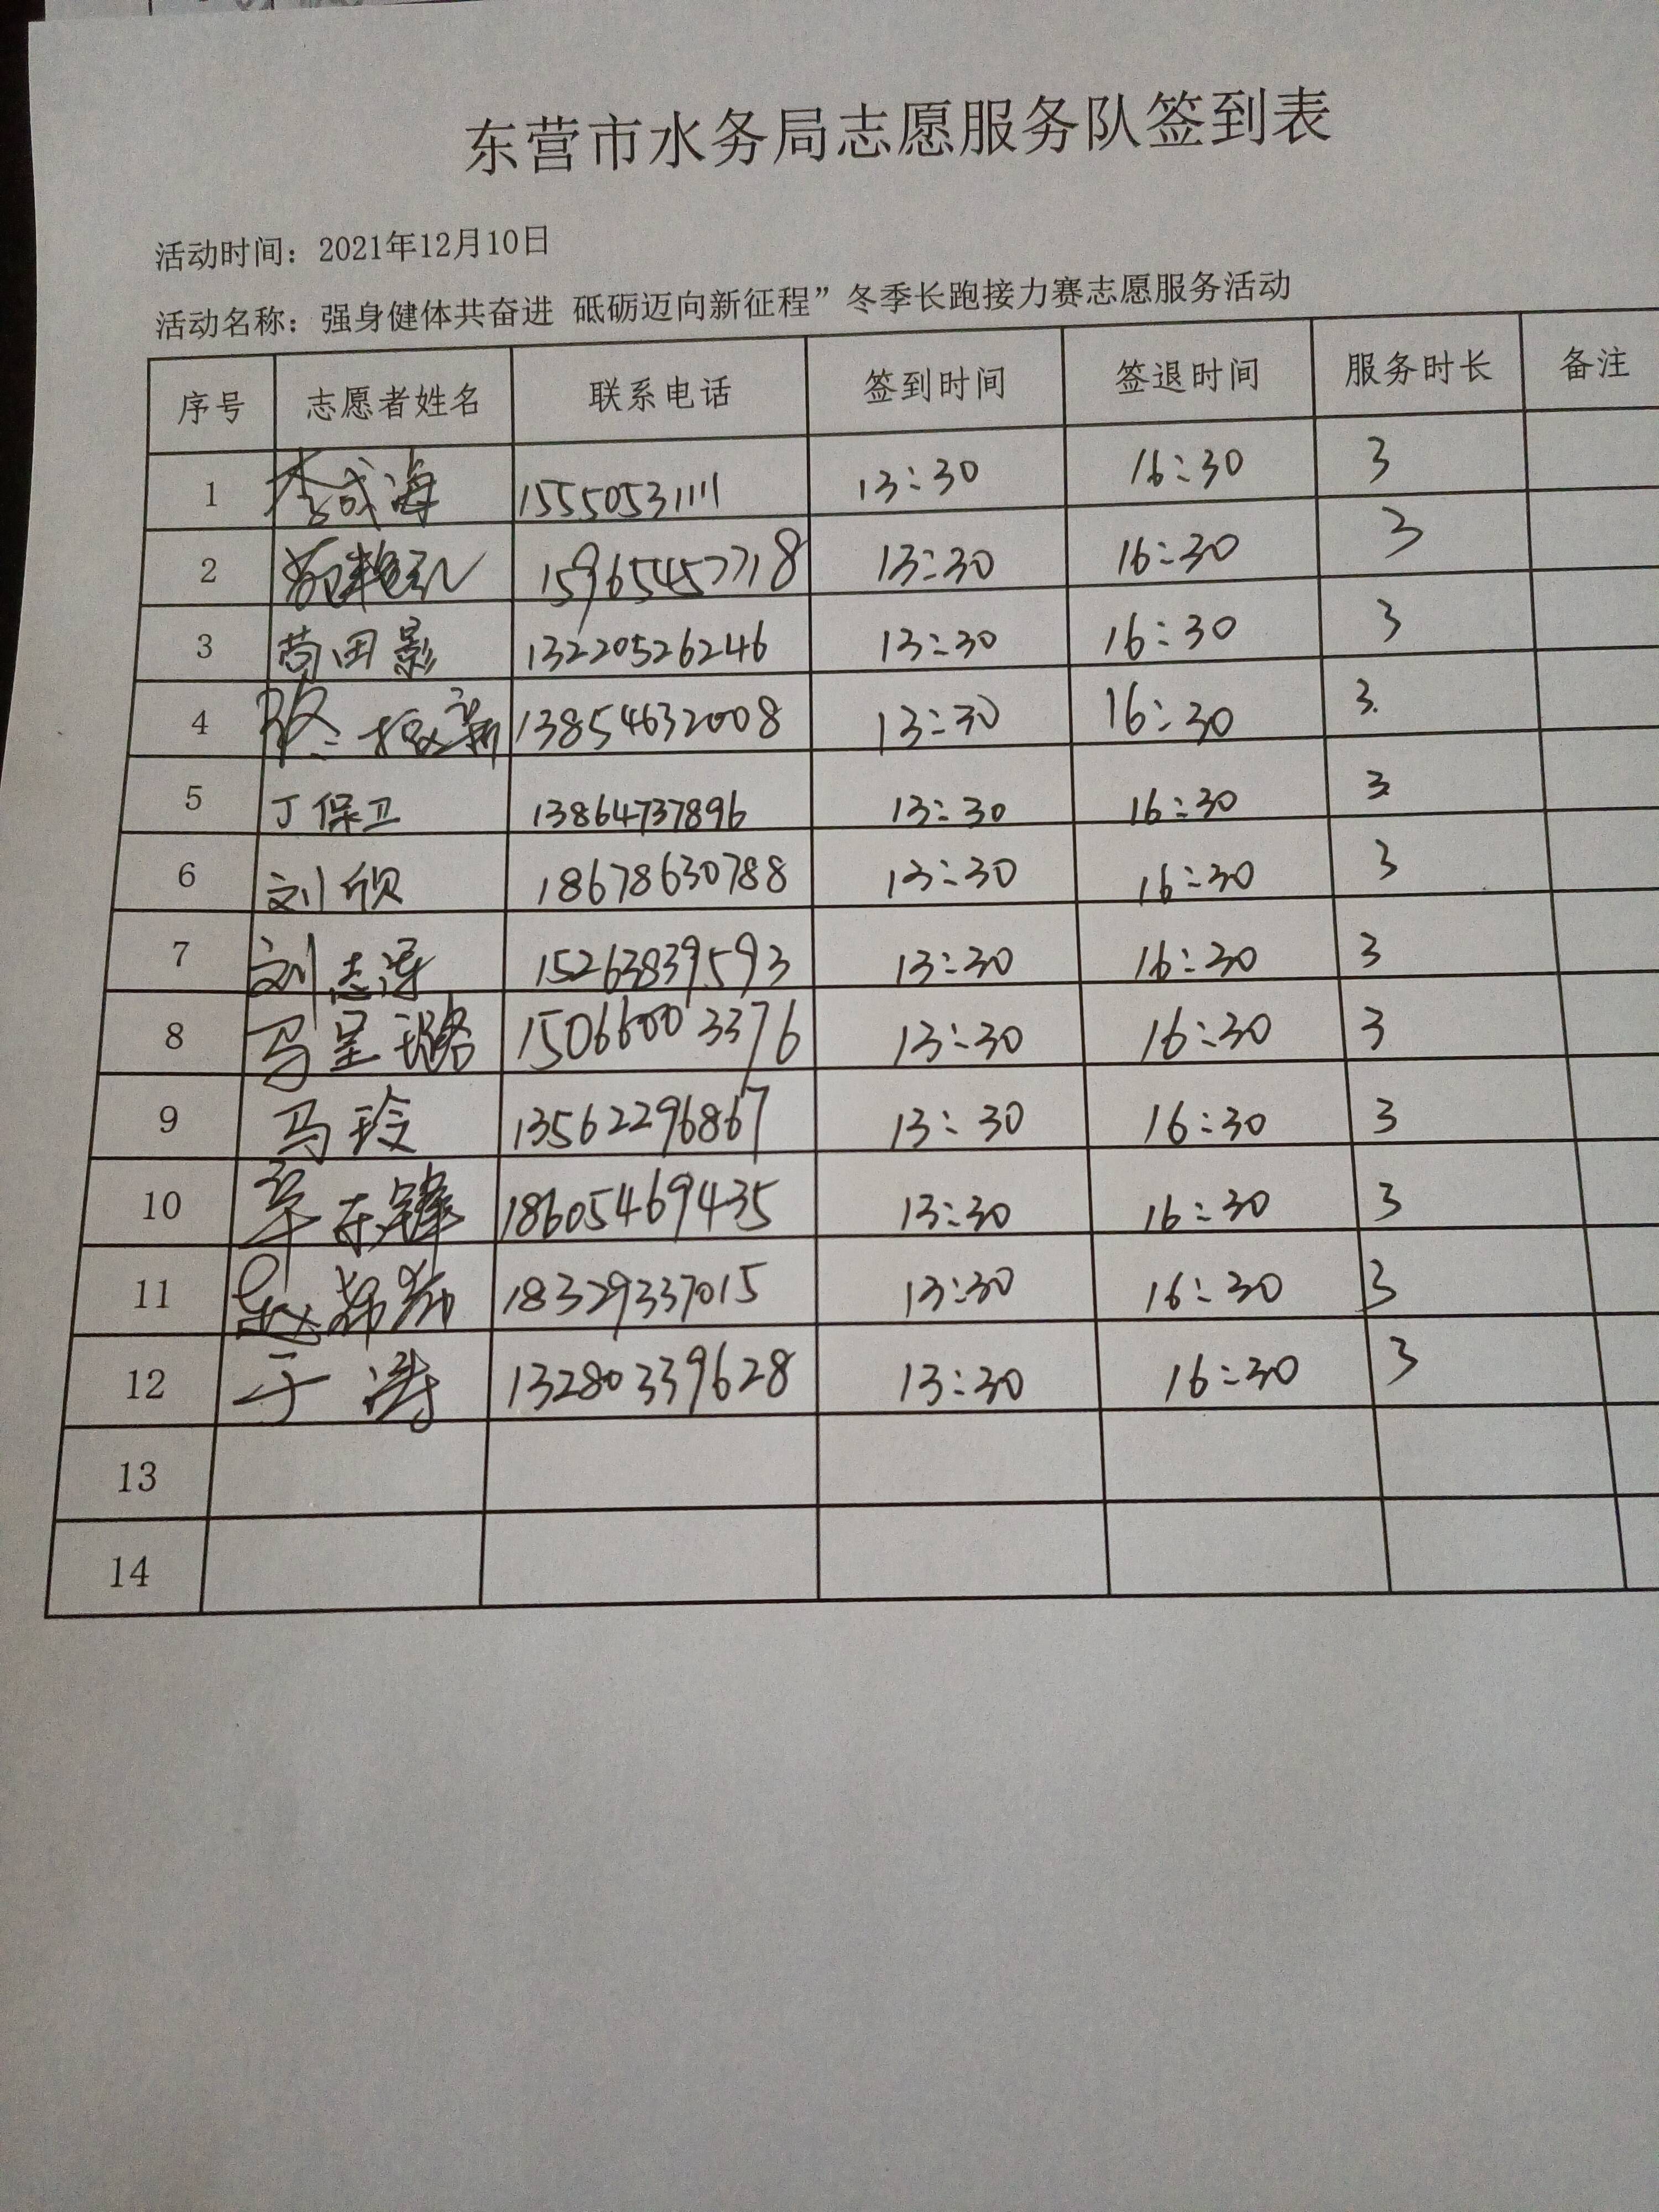 东营市水务局志愿服务队签到表
活动时间：2021年12月10日
活动名称：强身健体共奋进 砥砺迈向新征程”冬季长跑接力赛志愿服务活动
序号 志愿者姓名 联系电话 签到时间 签退时间 服务时长 备注
1 李成海 15550531111 13:30 16:30 3
2 15965457718 13:30 16:30 3
3 苟田影 13220526246 13:30 16:30 3
4 13854632008 13:30 16:30 3
5 丁保卫 13864737896 13:30 16:30 3
6 刘欣 18678630788 13:30 16:30 3
7 刘志涛 15263839593 13:30 16:30 3
8 马呈璐 15066003376 13:30 16:30 3
9 马玲 13562296867 13:30 16:30 3
10 辛东锋 18605469435 13:30 16:30 3
11 18329337015 13:30 16:30 3
12 于涛 13280339628 13:30 16:30 3
13
14